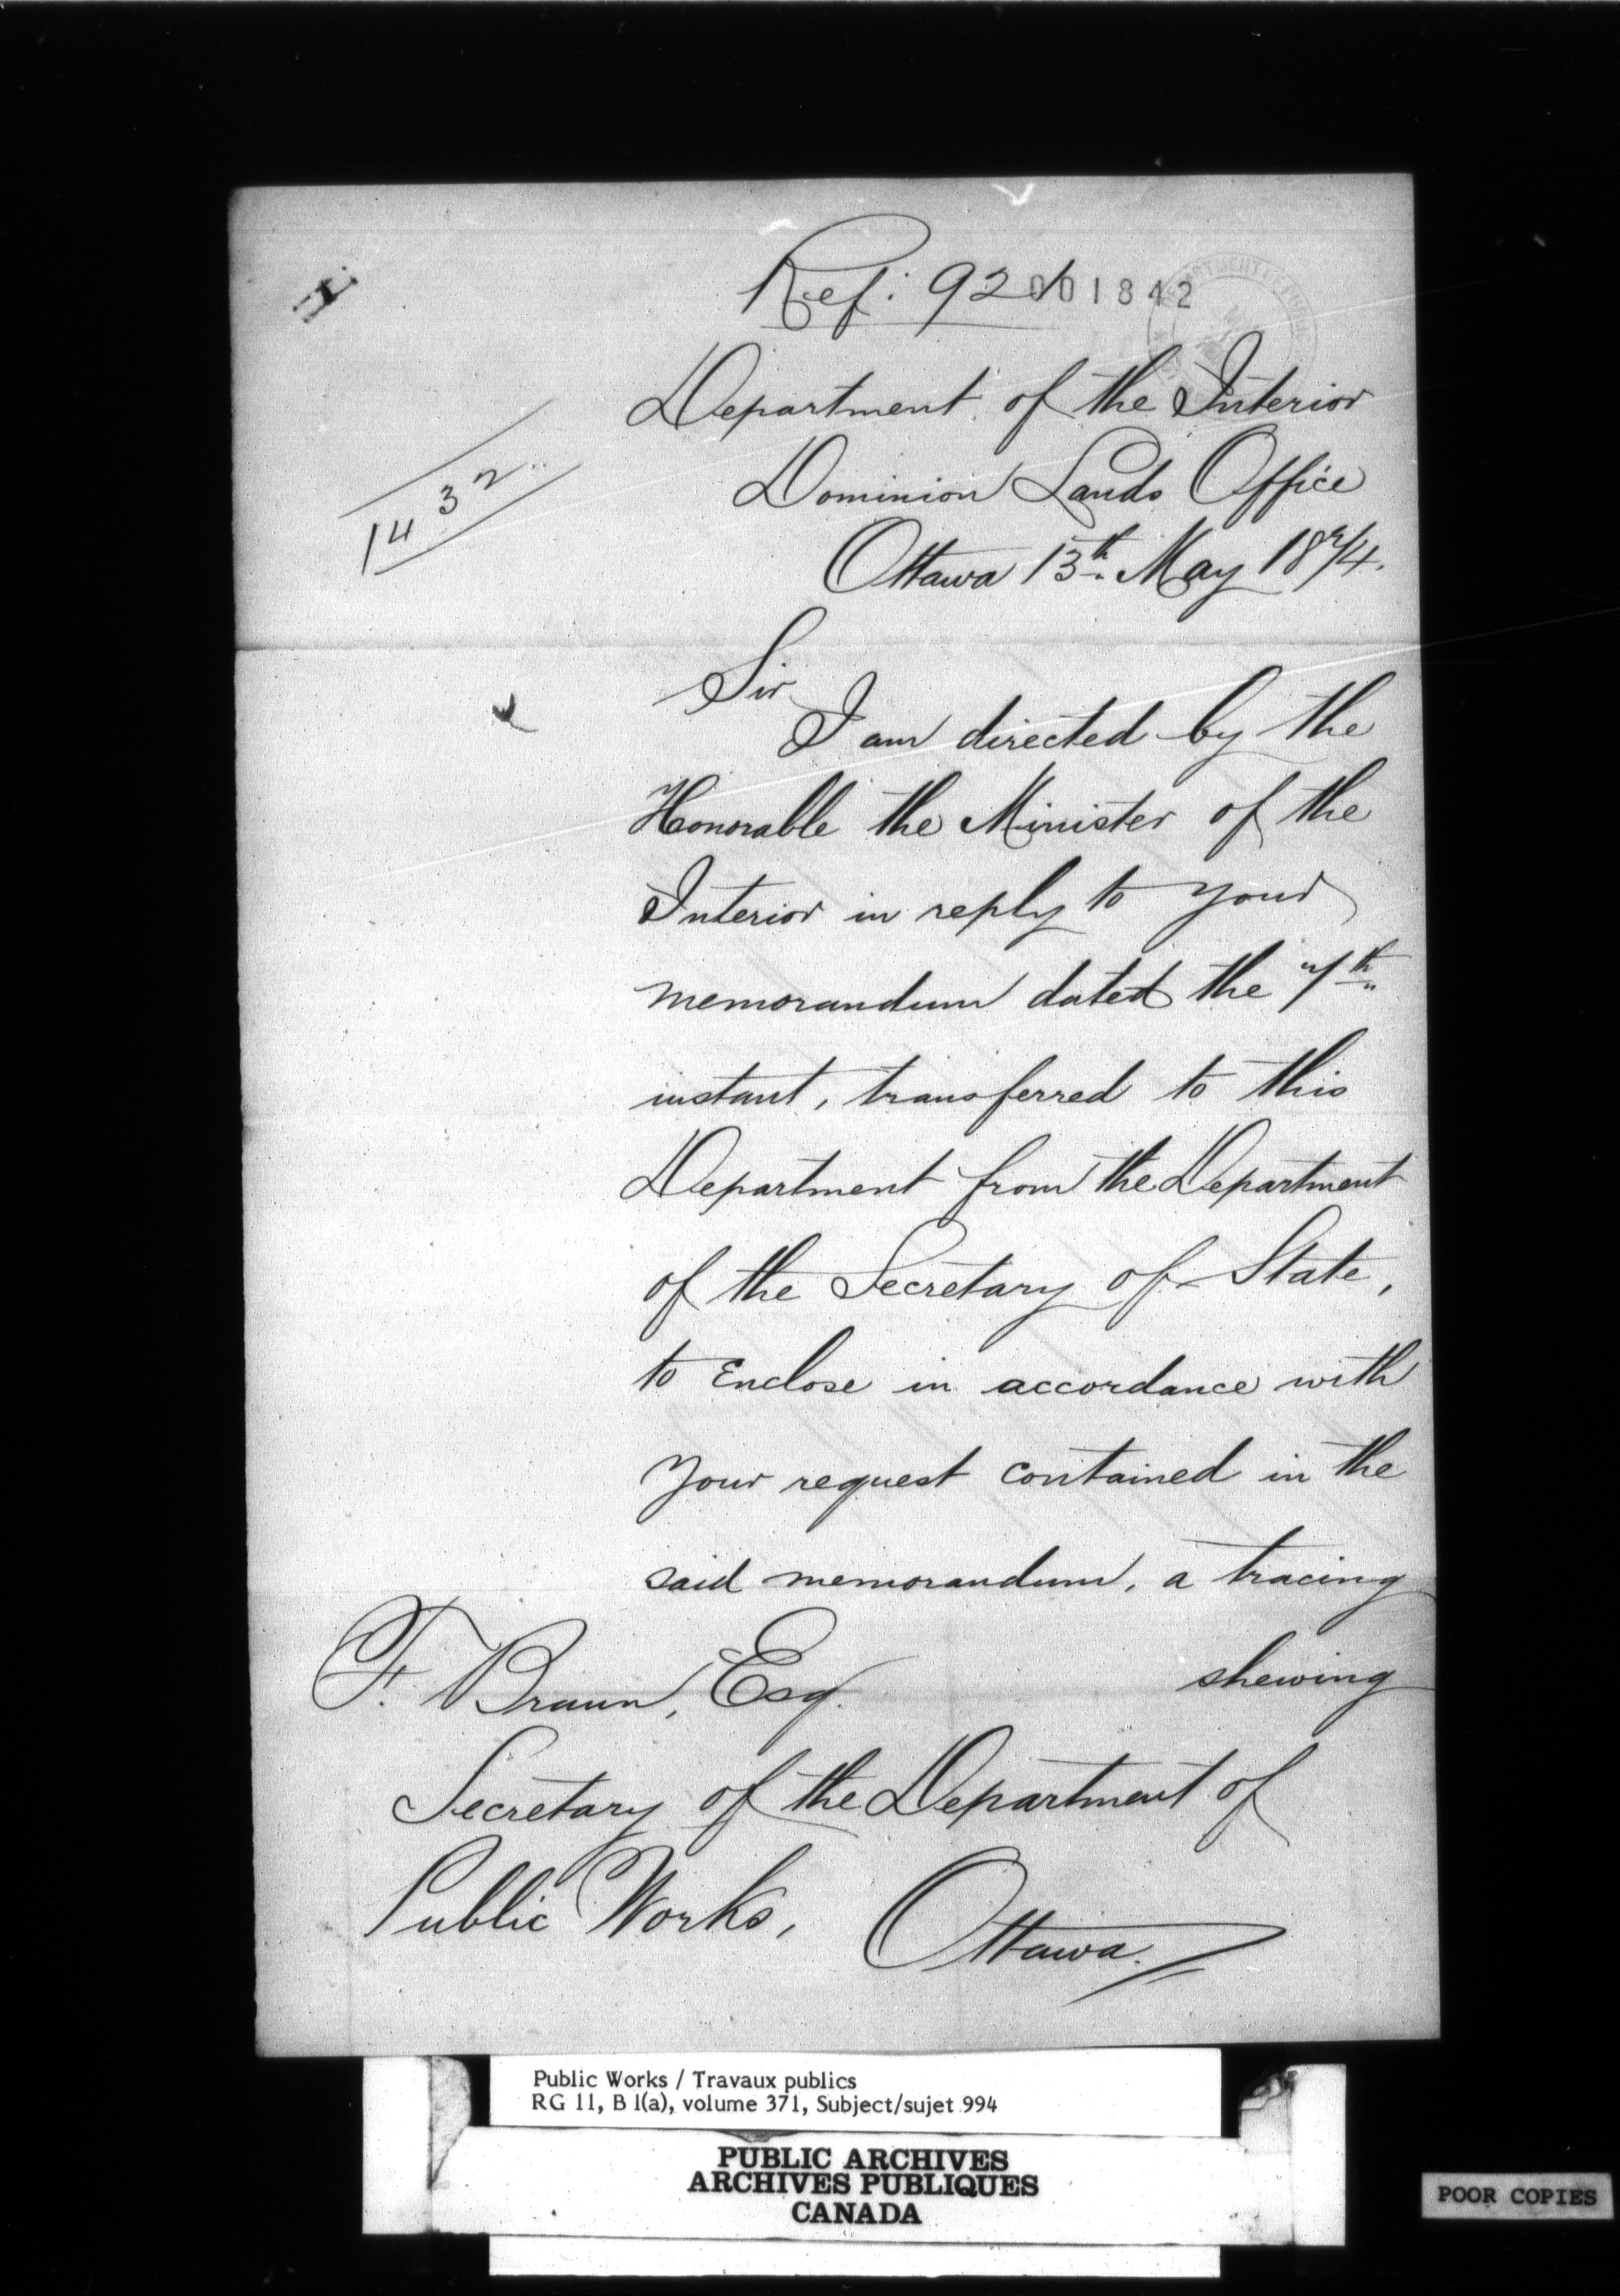 Ref: 921
001842
Department of the Interior
Dominion Lands Office
1432
Ottawa 13th May 1874.
Sir
I am directed by the
Honorable the Minister of the
Interior in reply to your
memorandum dated the 7th
instant, transferred to this
Department from the Department
of the Secretary of State,
to Enclose in accordance with
your request contained in the
said memorandum, a tracing
shewing
F. Braun, Esq.
Secretary of the Department of
Public Works, Ottawa.
Public Works / Travaux publics
RG 11, B 1(a), volume 371, Subject/sujet 994
PUBLIC ARCHIVES
ARCHIVES PUBLIQUES
CANADA
POOR COPIES